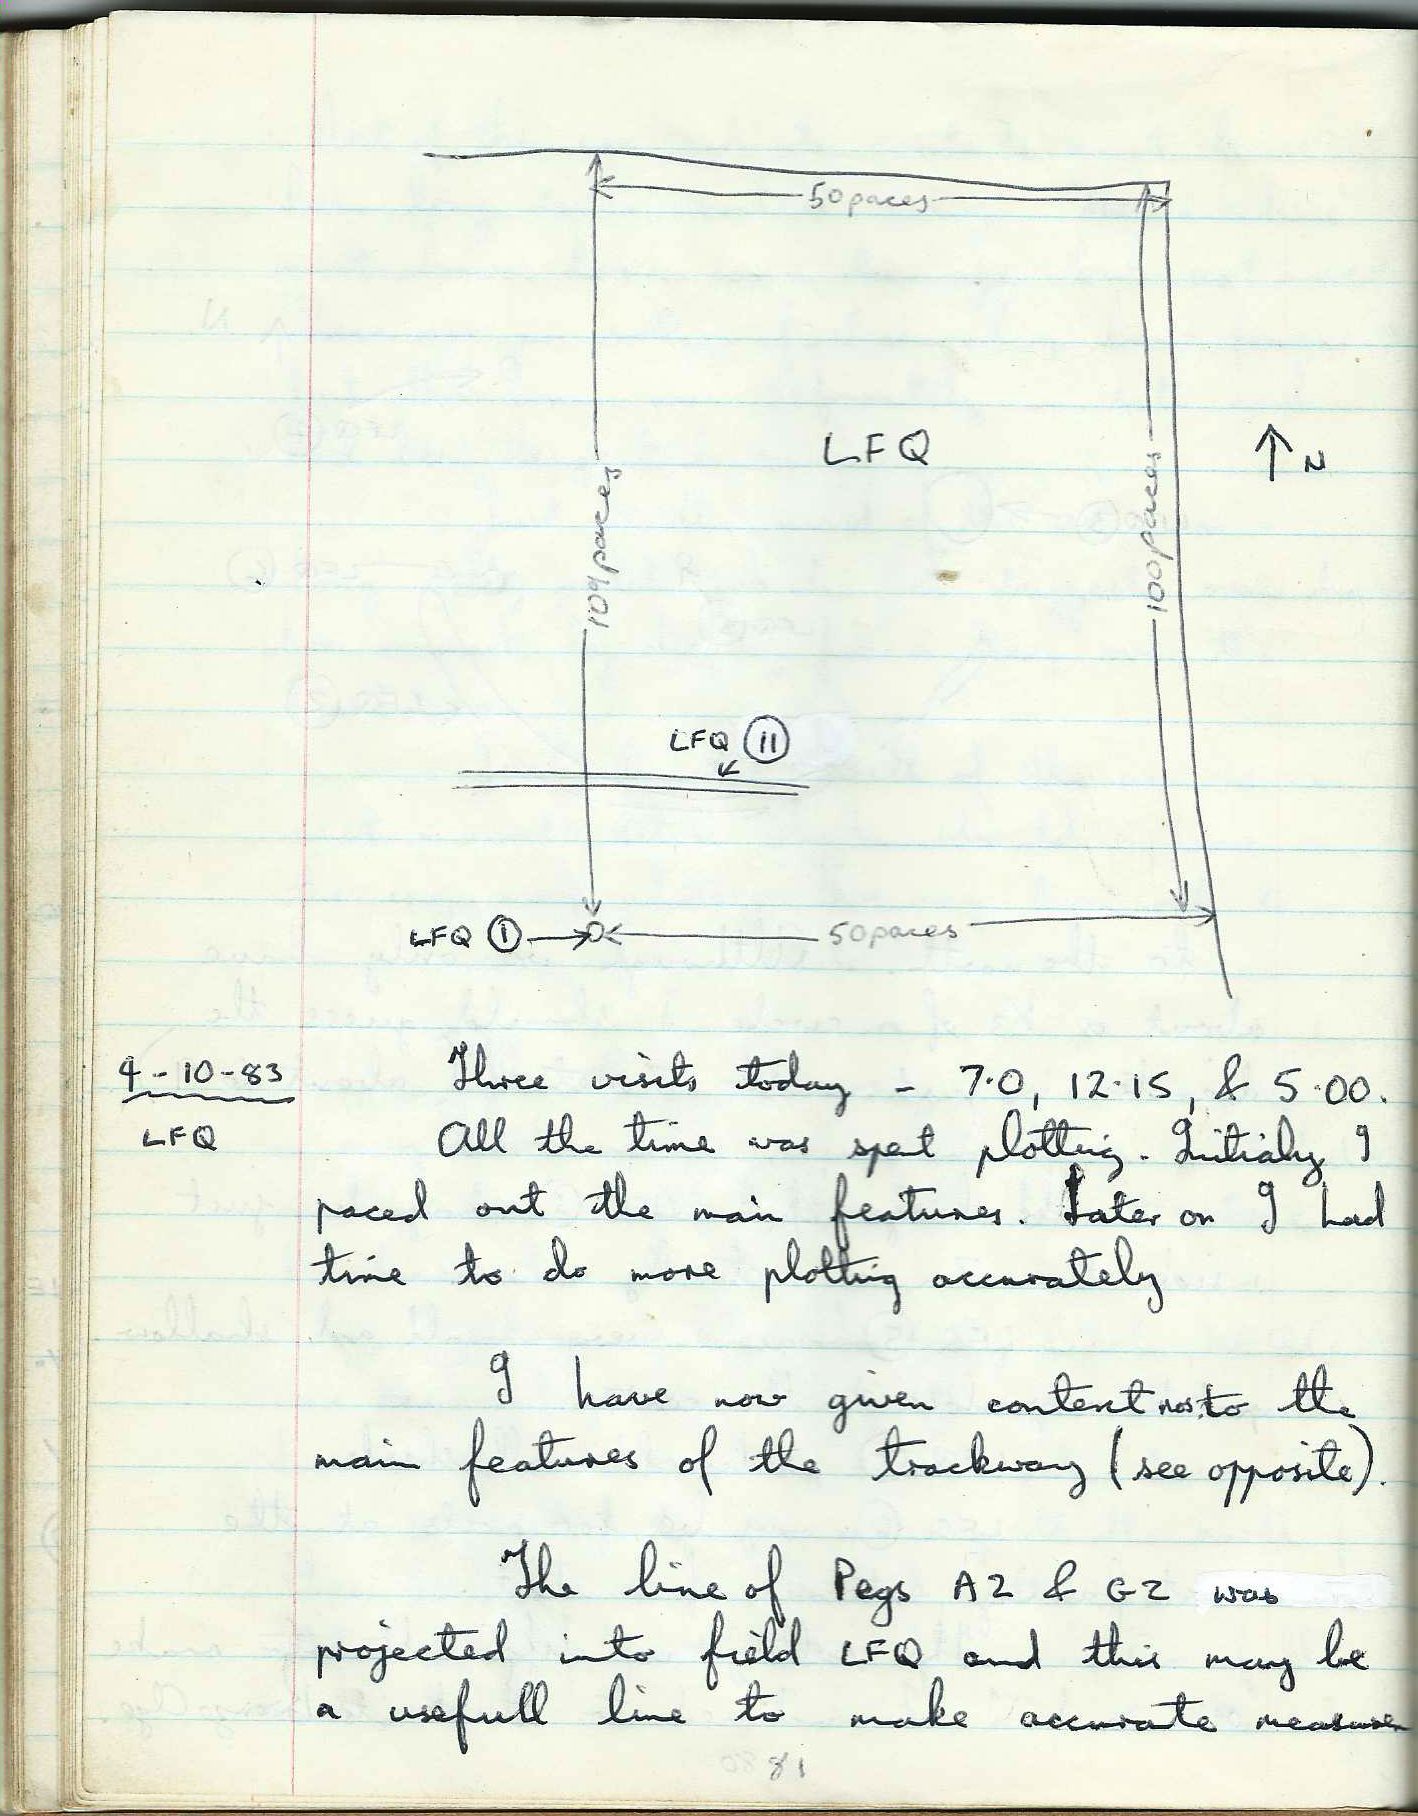 50 paces
LFQ
↑ N
109 paces
100 paces
LFQ (11)
LFQ (1)
50 paces
4-10-83
LFQ
Three visits today - 7.0, 12.15, & 5.00.
All the time was spent plotting. Initialy I
paced out the main features. Later on I had
time to do more plotting accurately
I have now given context nos. to the
main features of the trackway (see opposite).
The line of Pegs A2 & G2 was
projected into field LFQ and this may be
a usefull line to make accurate measurem
81